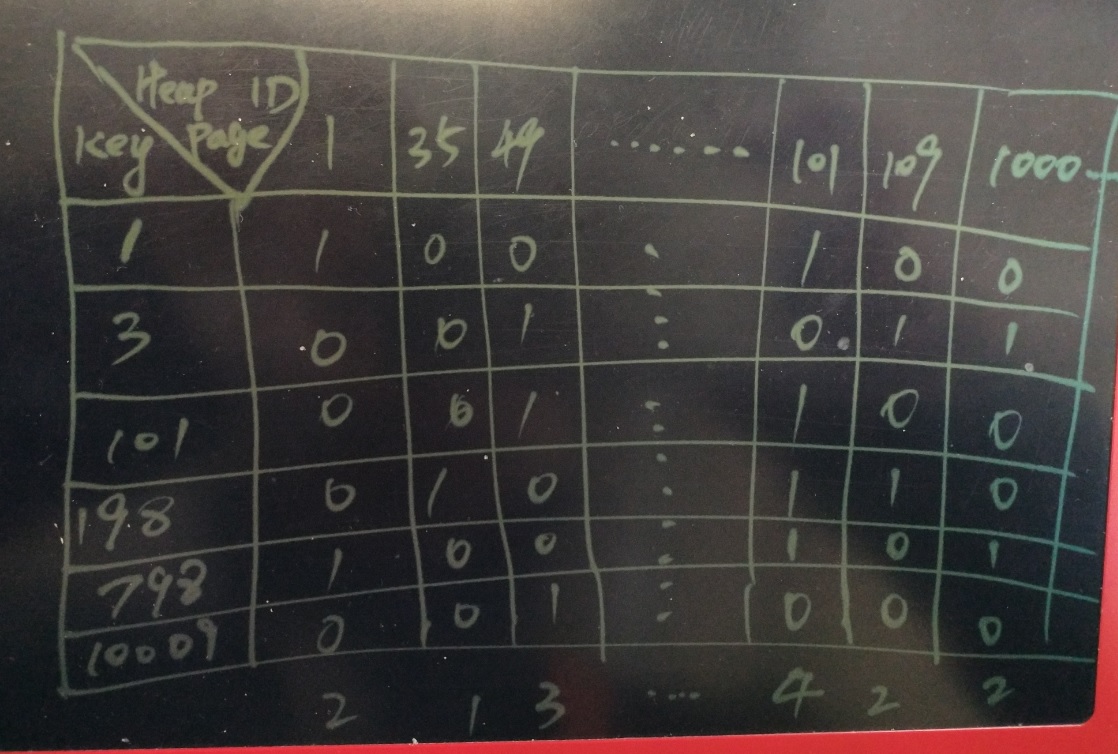 Heap ID
Key Page 1 35 49 ....... 101 109 1000
1 1 0 0 1 0 0
3 0 0 1 0 1 1
101 0 0 1 1 0 0
198 0 1 0 1 1 0
798 1 0 0 1 0 1
10009 0 0 1 0 0 0
2 1 3 ..... 4 2 2